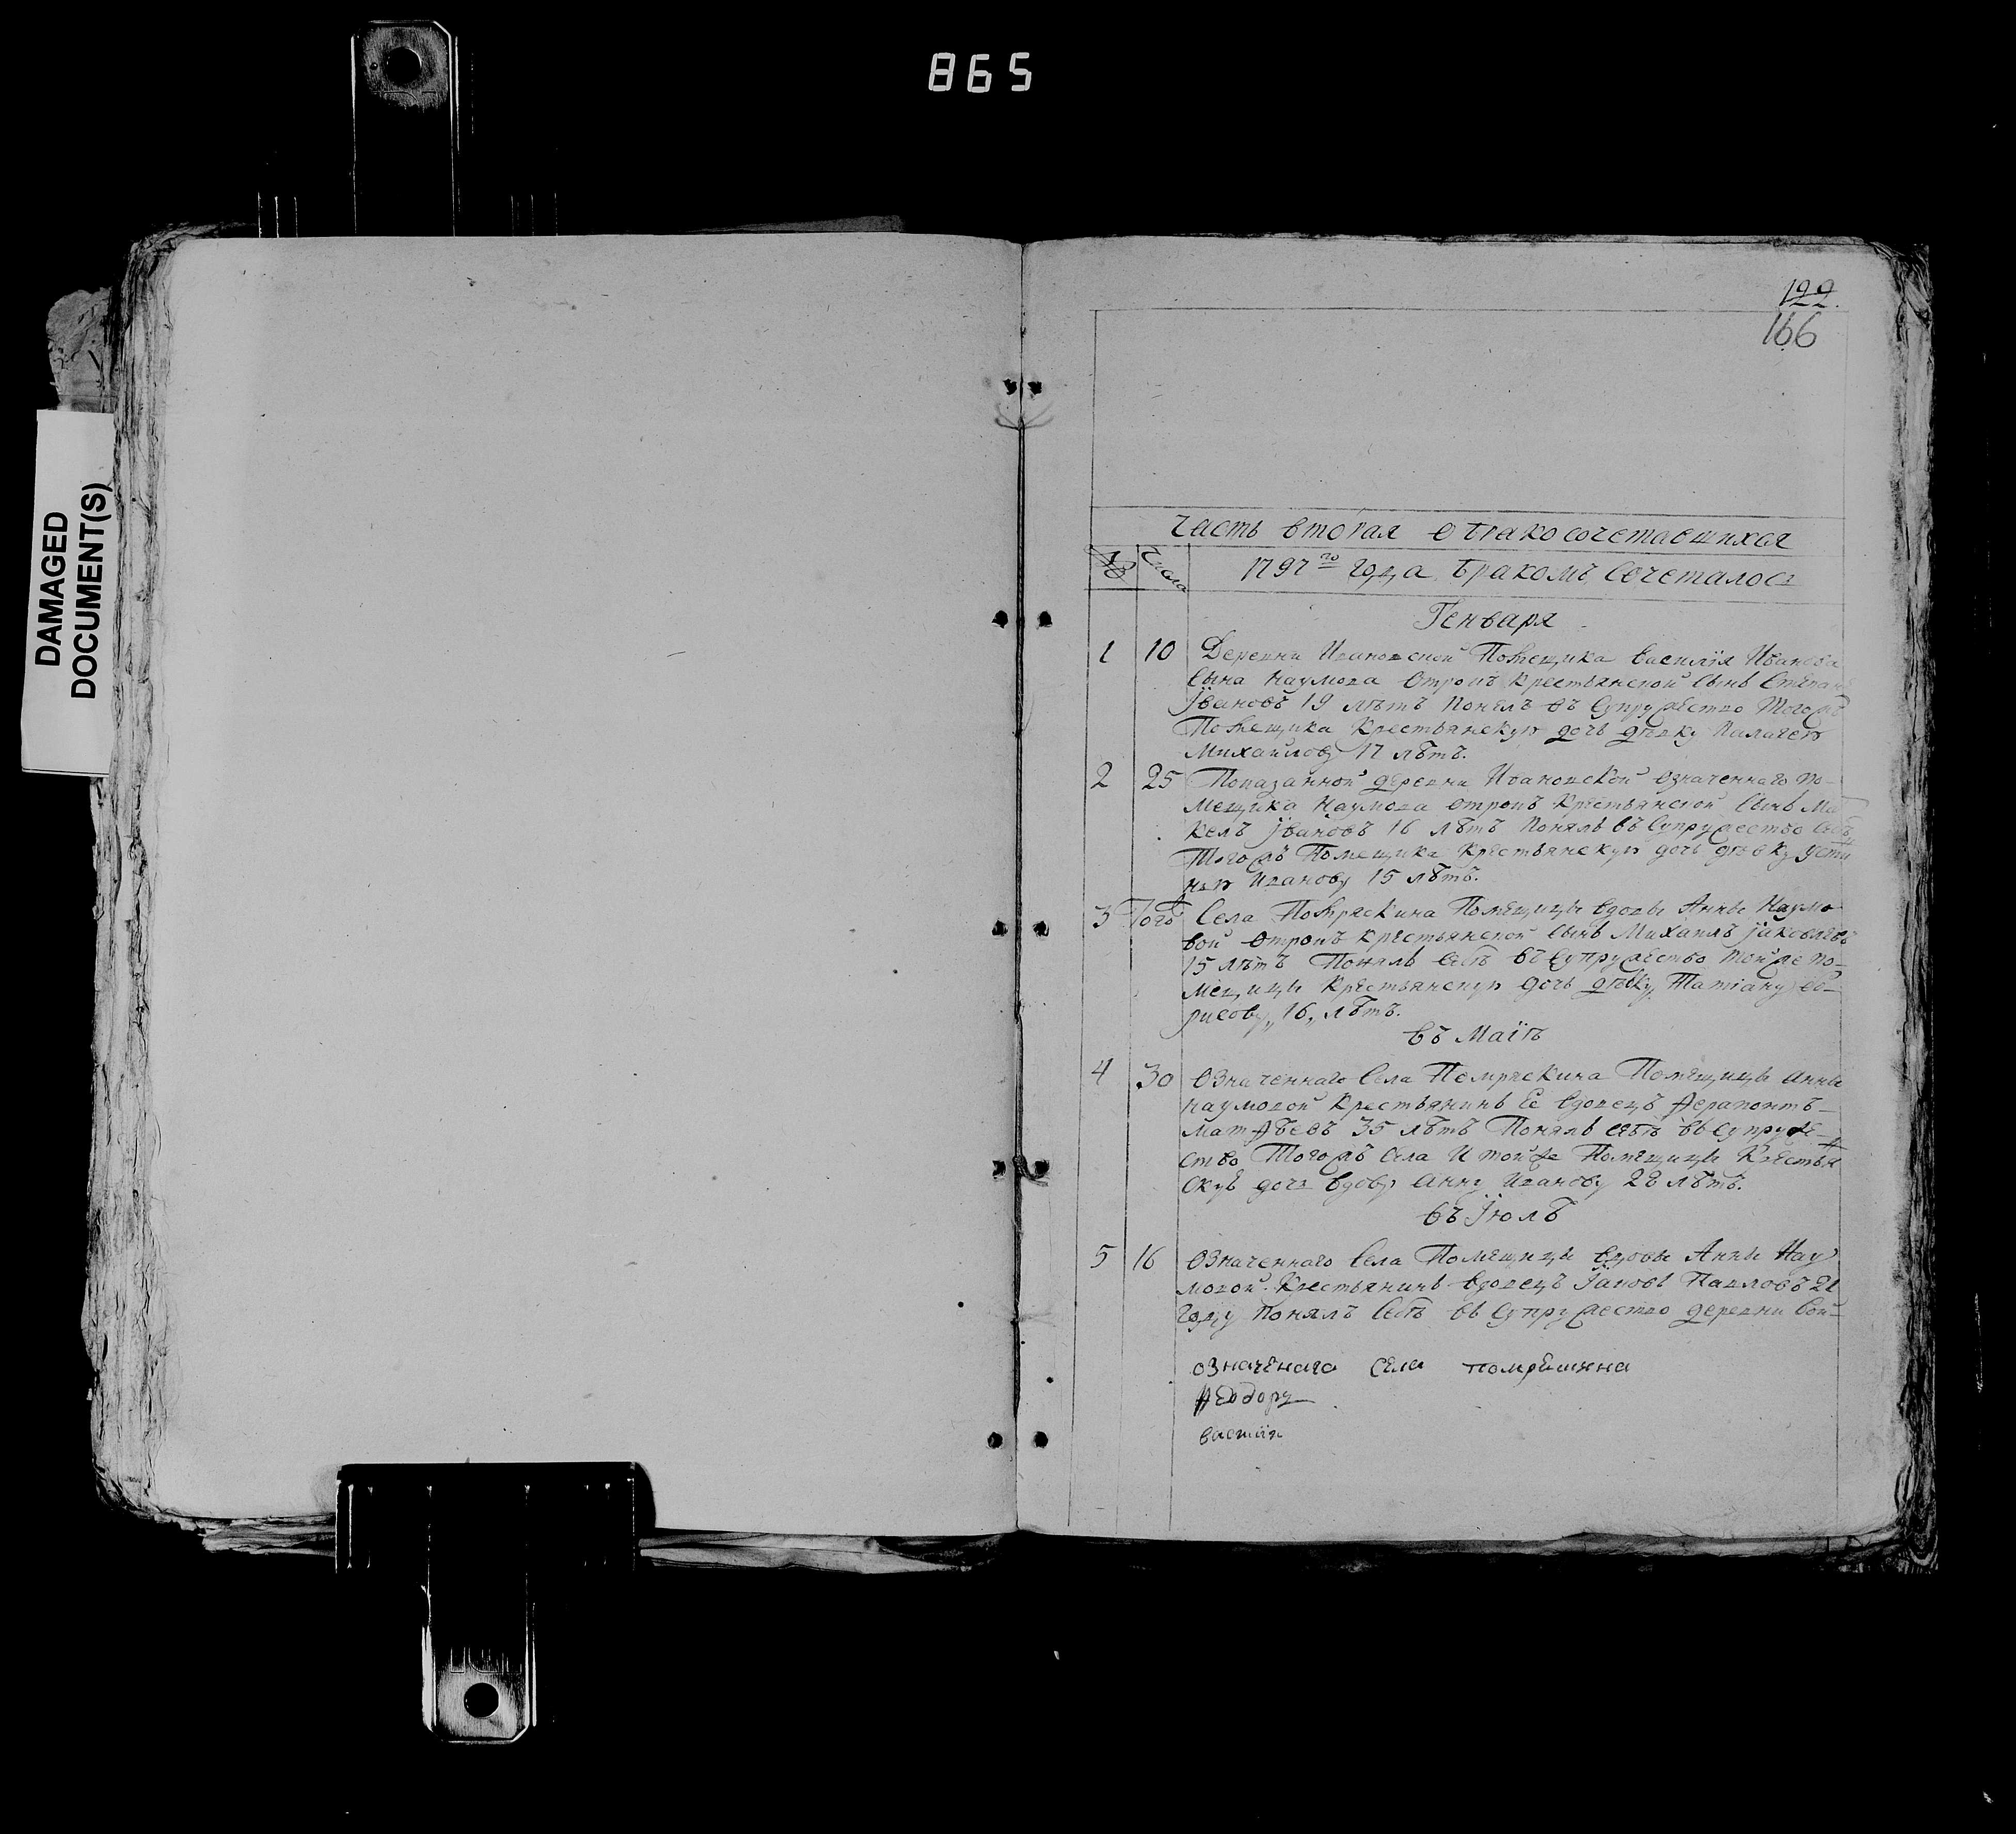 865
DAMAGED
DOCUMENT(S)
122
166
часть вторая о бракосочетавшихся
№ Числа 1797го года бракомъ сочеталось
Генваря
1 10 Деревни Ивановской Помещика Василїя Иванова
сына Наумова отрокъ крестьянской сынъ Степанъ
Ївановъ 19 лѣтъ понялъ въ супружество тогожъ
Помещика крестьянскую дочь дѣвку Палагею
Михайлову 17 лѣтъ.
2 25 Показанной деревни Ивановской означеннаго по-
мещика Наумова отрокъ крестьянской сынъ
Ївановъ 16 лѣтъ понялъ въ супружество себѣ
тогожъ Помещика крестьянскую дочь дѣвку Усти
нью Иванову 15 лѣтъ.
3 Того Села Потряскина Помещицы вдовы Анны Наумо
вой отрокъ крестьянской сынъ Михаилъ Їаковлевъ
15 лѣтъ Понялъ себѣ въ супружество тойже по-
мещицы крестьянскую дочь дѣвку Татїану Бо-
рисову „16„ лѣтъ.
въ Маїѣ
4 30 Означеннаго села Помряскина Помещицы Анны
Наумовой крестьянинъ Ее вдовецъ Ѳерапонтъ
Матѳѣевъ 35 лѣтъ Понялъ себѣ въ супруже-
ство тогожъ села и тойже Помещицы Крестья
скуѣ дочь вдову Анну Иванову 28 лѣтъ.
въ Їюлѣ
5 16 Означеннаго села Помещицы вдовы Анны Нау
мовой крестьянинъ вдовецъ Їаковъ Павловъ 21
году понялъ себѣ въ супружество деревни Вой-
означенаго села помряскина
Ѳеодору
василїя